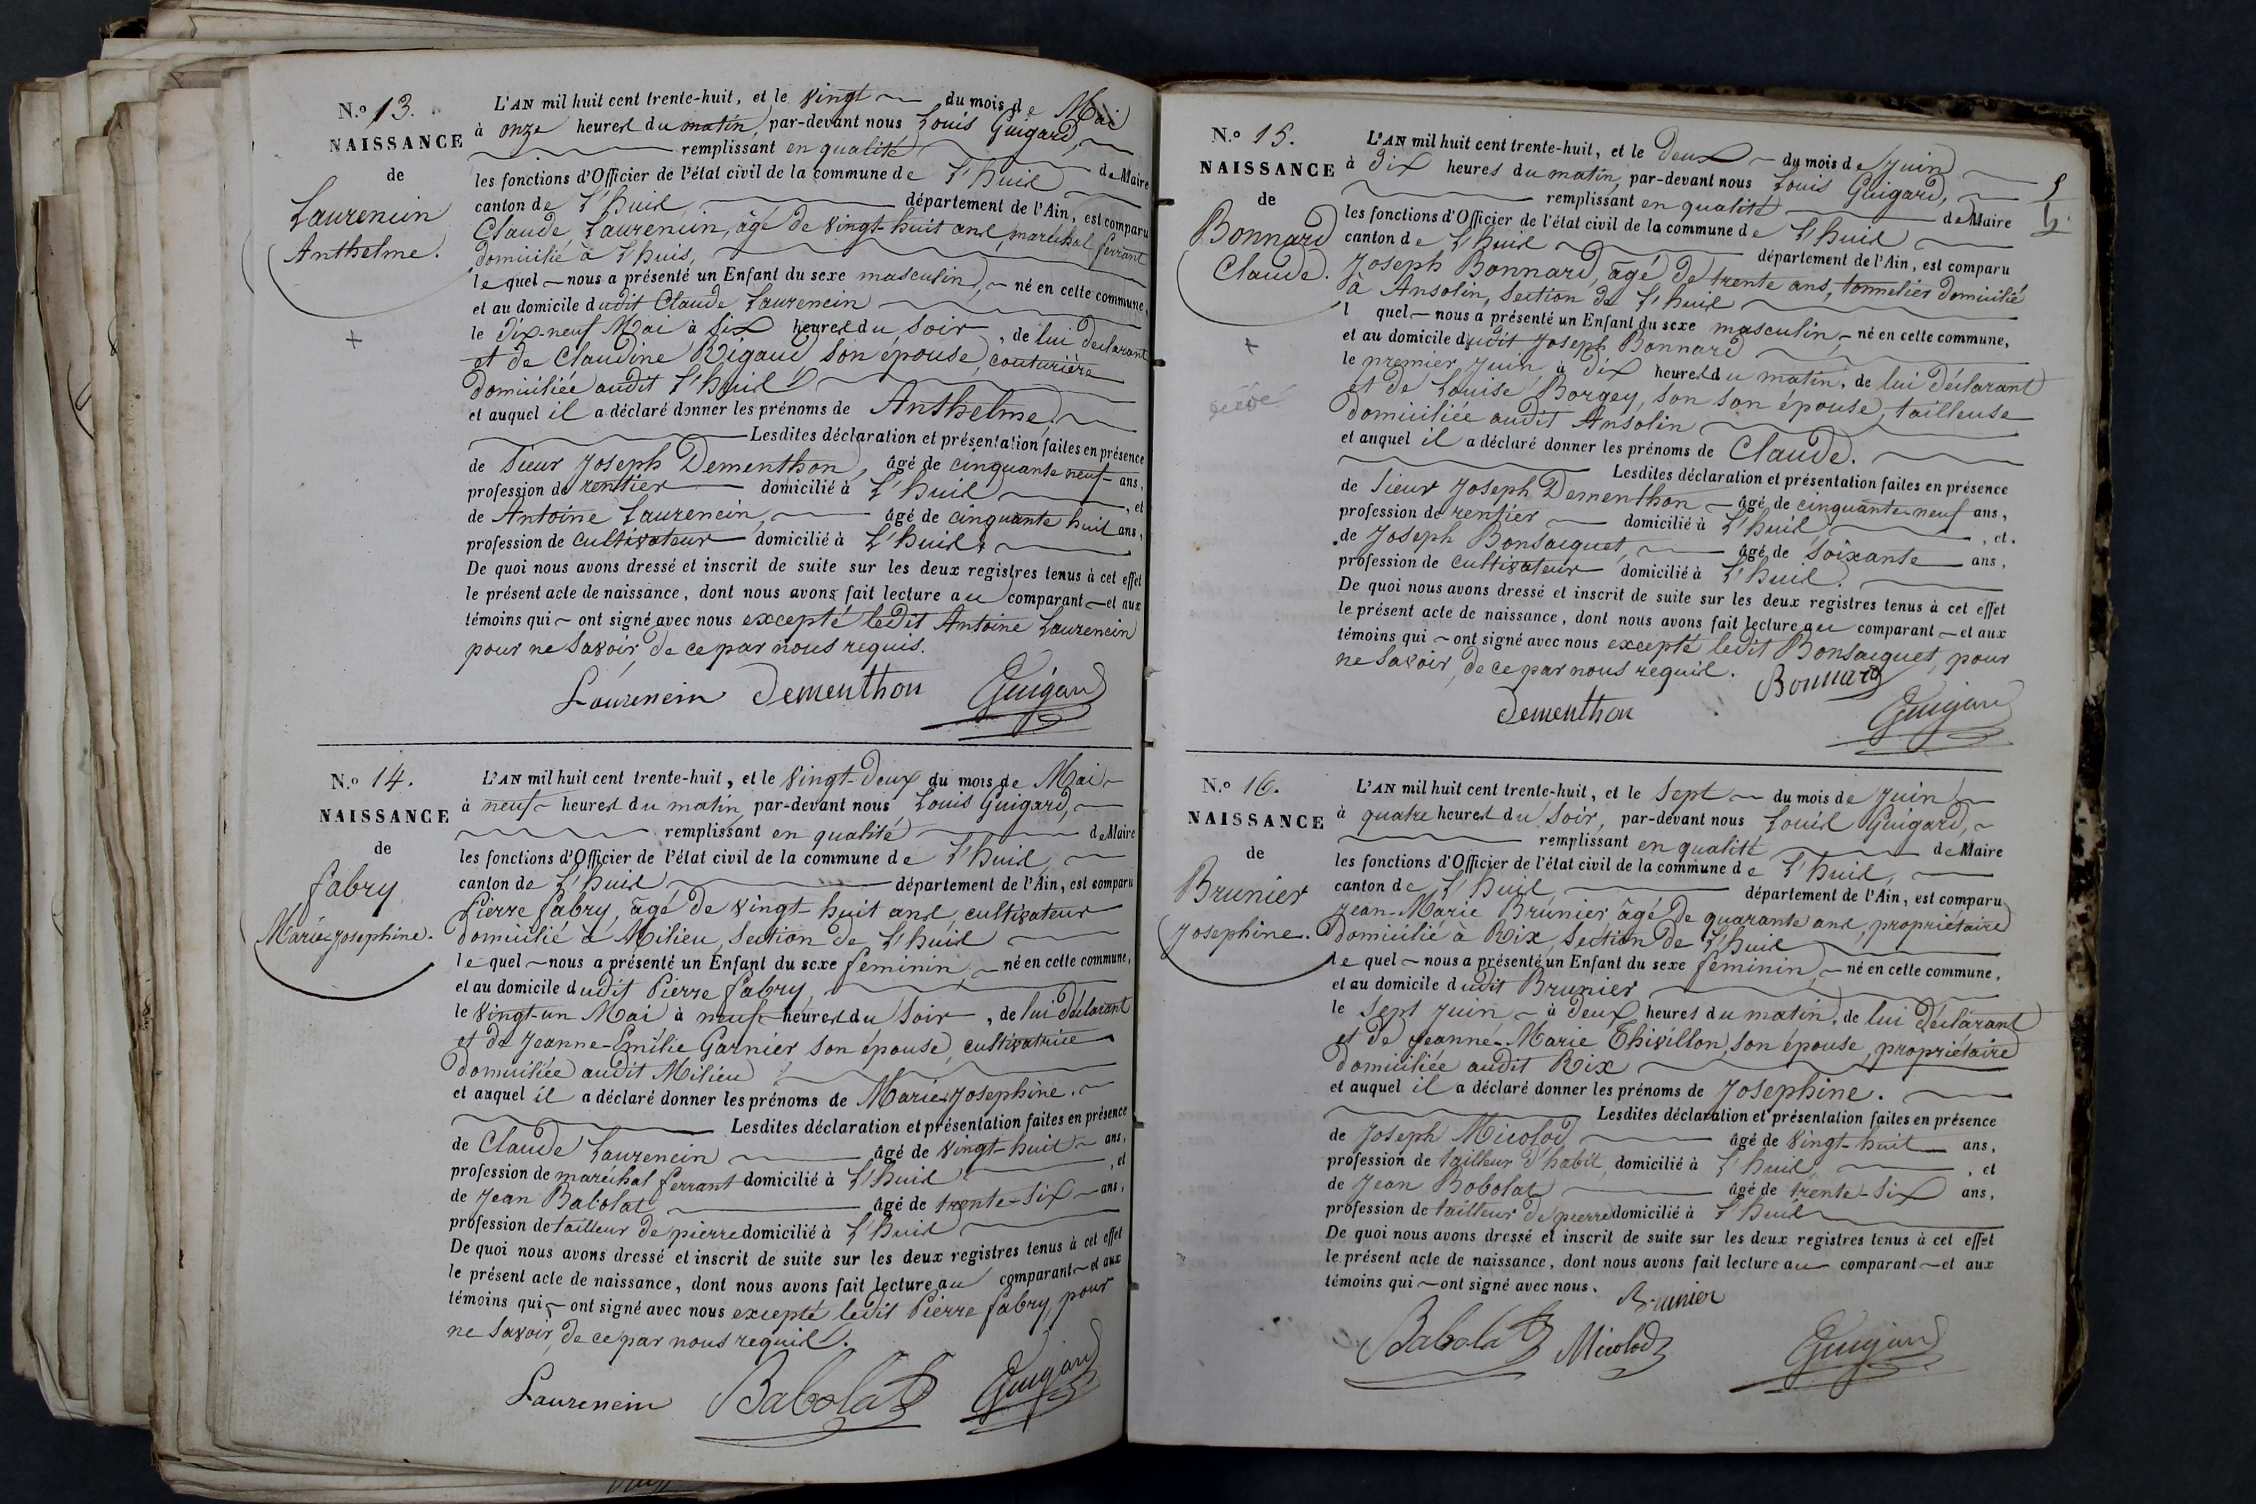 N.º 13.
NAISSANCE
de
Laurencin
Anthelme.
L'AN mil huit cent trente-huit, et le vingt du mois de Mai
à onze heures du matin, par-devant nous Louis Guigard,
remplissant en qualité de Maire
les fonctions d'Officier de l'état civil de la commune de L'huis
canton de L'huis département de l'Ain, est comparu
Claude Laurencin, âgé de vingt-huit ans, maréchal ferrant
domicilié à L'huis,
lequel nous a présenté un Enfant du sexe masculin, né en cette commune,
et au domicile dudit Claude Laurencin
le dix-neuf Mai à six heures du soir, de lui déclarant
et de Claudine Rigaud son épouse, couturière
domiciliée audit L'huis
et auquel il a déclaré donner les prénoms de Anthelme,
Lesdites déclaration et présentation faites en présence
de Sieur Joseph Dementhon, âgé de cinquante neuf ans,
profession de rentier domicilié à L'huis, et
de Antoine Laurencin, âgé de cinquante huit ans,
profession de cultivateur domicilié à L'huis.
De quoi nous avons dressé et inscrit de suite sur les deux registres tenus à cet effet
le présent acte de naissance, dont nous avons fait lecture au comparant et aux
témoins qui ont signé avec nous excepté ledit Antoine Laurencin
pour ne savoir, de ce par nous requis.
Laurencin Dementhon Guigard
N.º 14.
NAISSANCE
de
Fabry
Marie-Josephine.
L'AN mil huit cent trente-huit, et le vingt-deux du mois de Mai
à neuf heures du matin, par-devant nous Louis Guigard,
remplissant en qualité de Maire
les fonctions d'Officier de l'état civil de la commune de L'huis,
canton de L'huis département de l'Ain, est comparu
Pierre Fabry, âgé de vingt-huit ans, cultivateur
domicilié à Milieu, section de L'huis
lequel nous a présenté un Enfant du sexe féminin, né en cette commune,
et au domicile dudit Pierre Fabry,
le vingt-un Mai à neuf heures du soir, de lui déclarant
et de Jeanne-Emilie Garnier son épouse, cultivatrice
domiciliée audit Milieu
et auquel il a déclaré donner les prénoms de Marie-Josephine.
Lesdites déclaration et présentation faites en présence
de Claude Laurencin âgé de vingt-huit ans,
profession de maréchal ferrant domicilié à L'huis, et
de Jean Babolat âgé de trente-six ans,
profession de tailleur de pierre domicilié à L'huis
De quoi nous avons dressé et inscrit de suite sur les deux registres tenus à cet effet
le présent acte de naissance, dont nous avons fait lecture au comparant et aux
témoins qui ont signé avec nous excepté ledit Pierre Fabry, pour
ne savoir, de ce par nous requis.
Laurencin Babolat Guigard
N.º 15.
NAISSANCE
de
Bonnard
Claude.
L'AN mil huit cent trente-huit, et le deux du mois de Juin
à dix heures du matin, par-devant nous Louis Guigard,
remplissant en qualité de Maire
les fonctions d'Officier de l'état civil de la commune de L'huis
canton de L'huis département de l'Ain, est comparu
Joseph Bonnard, âgé de trente ans, tonnelier domicilié
à Ansolin, section de L'huis
l quel nous a présenté un Enfant du sexe masculin, né en cette commune,
et au domicile dudit Joseph Bonnard
le premier Juin, à dix heures du matin, de lui déclarant
et de Louise Borgey, son son épouse, tailleuse
domiciliée audit Ansolin
et auquel il a déclaré donner les prénoms de Claude.
Lesdites déclaration et présentation faites en présence
de Sieur Joseph Dementhon âgé de cinquante-neuf ans,
profession de rentier domicilié à L'huis, et
de Joseph Bonsacquet, âgé de soixante ans,
profession de cultivateur domicilié à L'huis.
De quoi nous avons dressé et inscrit de suite sur les deux registres tenus à cet effet
le présent acte de naissance, dont nous avons fait lecture au comparant et aux
témoins qui ont signé avec nous excepté ledit Bonsacquet, pour
ne savoir, de ce par nous requis. Bonnard
Dementhon Guigard
N.º 16.
NAISSANCE
de
Brunier
Josephine.
L'AN mil huit cent trente-huit, et le sept du mois de Juin
à quatre heures du soir, par-devant nous Louis Guigard,
remplissant en qualité de Maire
les fonctions d'Officier de l'état civil de la commune de L'huis,
canton de L'huis département de l'Ain, est comparu
Jean-Marie Brunier âgé de quarante ans, propriétaire
domicilié à Rix, section de L'huis
lequel nous a présenté un Enfant du sexe féminin, né en cette commune,
et au domicile dudit Brunier
le sept Juin, à deux heures du matin, de lui déclarant
et de Jeanne-Marie Thivillon, son épouse, propriétaire
domiciliée audit Rix
et auquel il a déclaré donner les prénoms de Josephine.
Lesdites déclaration et présentation faites en présence
de Joseph Micolod âgé de vingt-huit ans,
profession de tailleur d'habit, domicilié à L'huis, et
de Jean Bobolat âgé de trente-six ans,
profession de tailleur de pierre domicilié à L'huis
De quoi nous avons dressé et inscrit de suite sur les deux registres tenus à cet effet
le présent acte de naissance, dont nous avons fait lecture au comparant et aux
témoins qui ont signé avec nous. Brunier
Babolat Micolod Guigard